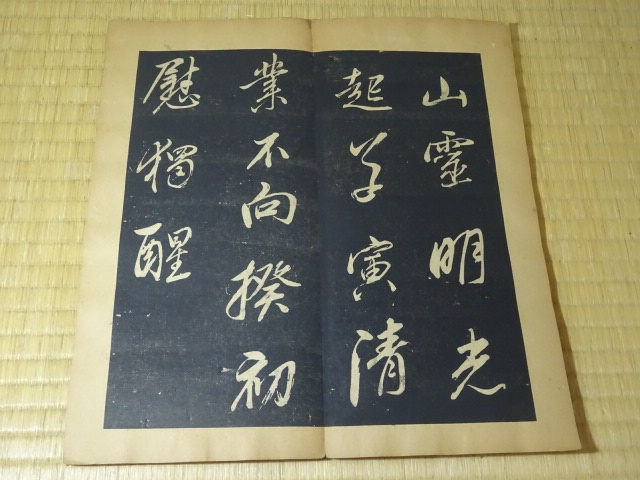 山靈明光
起草寅清
業不向揆初
慰獨醒